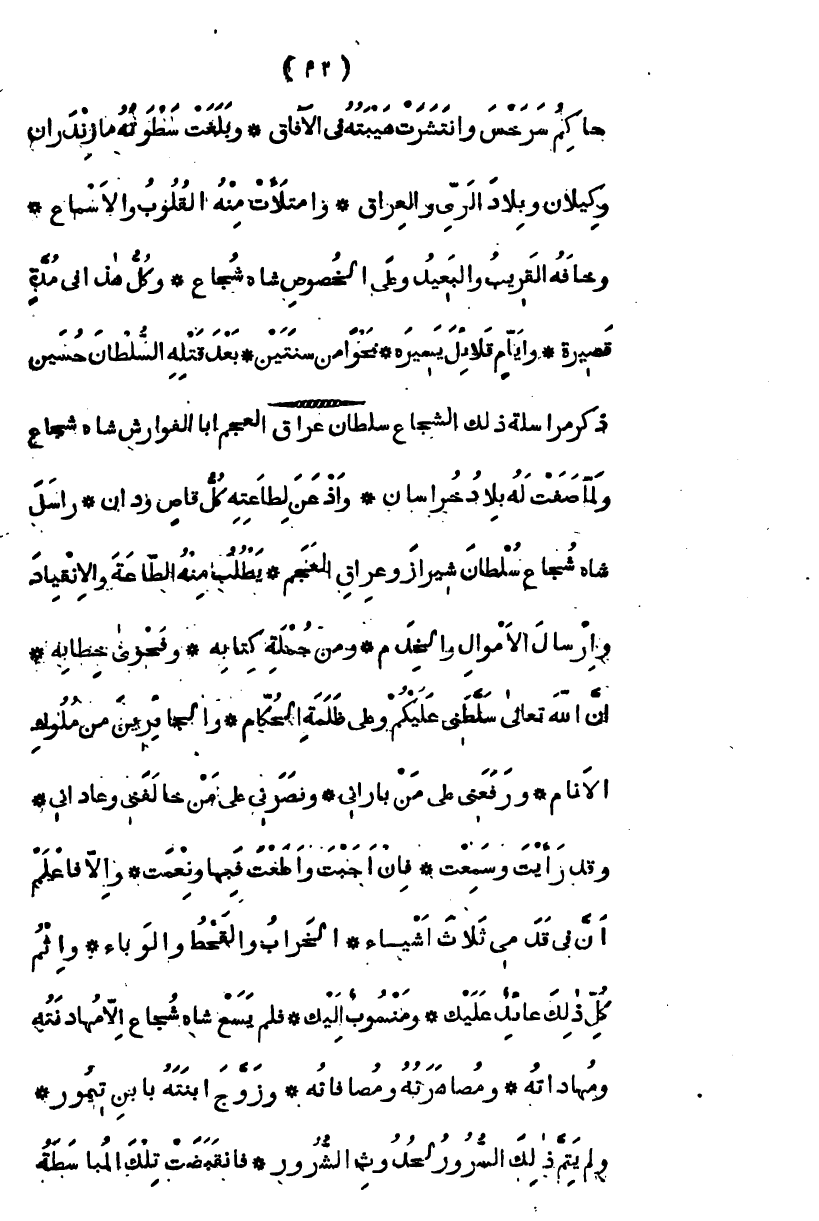 ( ٣٢ )
حاكِمُ سَرَخْسَ وانتَشَرَت هَيْبَتُه فى الآفاق * وبَلَغَت سَطْوَتُهُ مازِنْدَران
وكِيلان وبِلادَ الرَىّ والعِراق * وامتلَأَتْ مِنْهُ القُلُوبُ والأَسْماع *
وخافَهُ القَرِيبُ والبَعِيدُ وعلَى الخُصوصِ شاه شُجاع * وكُلُّ هٰذا فى مُدَّةٍ
قَصِيرة * وايّامٍ قَلائِلَ يَسِيرَه * نَحْوًا من سنَتَيْن * بَعْدَ قَتْلِهِ السُّلْطانَ حُسَين
ذكر مراسلة ذلك الشجاع سلطان عراق العجم ابا الفوارش شاه شجاع
ولَمّا صَفَتْ لَهُ بِلادُ خُراسان * واَذْعَنَ لِطاعَتِهِ كُلُّ قاصٍ ودان * راسَلَ
شاه شُجاع سُلْطانَ شِيرازَ وعِراقِ العَجَم * يَطْلُبُ مِنْهُ الطّاعَةَ والاِنْقِيادَ
واِرْسالَ الاَمْوالِ والخِدَم * ومن جُمْلَةِ كِتابِه * وفَحْوىٰ خِطابِه *
انَّ اللّٰهَ تعالىٰ سَلَّطَنِى عَلَيْكُمْ وعلى ظَلَمَةِ الحُكّام * والجائِرِينَ من مُلُوكِ
الاَنام * ورَفَعَنِى على مَنْ بارانِى * ونصَرَنِى على مَنْ خالَفَنِى وعادانِى *
وقد رَأَيْتَ وسَمِعْت * فاِنْ اَجَبْتَ واَطَعْتَ فَبِها ونِعْمَت * واِلّا فاعْلَمْ
اَنَّ فى قَدَمِى ثَلاثَ اَشْياء * الخَرابُ والقَحْطُ والوَباء * واِثْمُ
كُلِّ ذٰلِكَ عائِدٌ عَلَيْك * ومَنْسُوبٌ اِلَيْك * فلم يَسَعْ شاه شُجاع اِلّا مُهادَنَتُه
ومُهاداتُه * ومُصاهَرَتُهُ ومُصافاتُه * وزَوَّجَ ابنَتَهُ بابنِ تِيمُور *
ولم يَتِمَّ ذٰلِكَ السُّرُورُ لحُدُوثِ الشُّرُور * فانقَبَضَتْ تِلْكَ المُباسَطَةُ